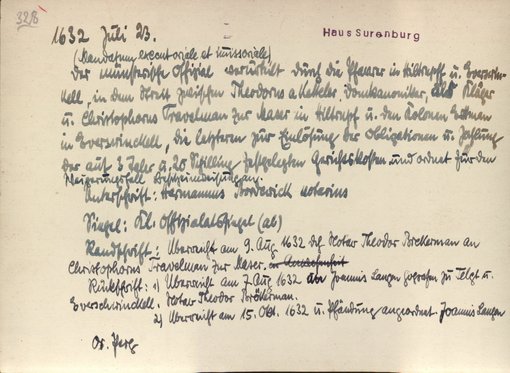 328
1632 Juli 23.
Haus Surenburg
(Mandatum executoriale et missoriale)
Der münstersche Offizial verurteilt durch die Pfarrer in Hiltrupf u. Everswin-
kell, in dem Streit zwischen Theodorus a Ketteler, Domkanoniker, als Kläger
u. Christophorus Travelman zur Maser in Hiltrupf u. den Kolonen
in Everswinckell, die letzteren zur Einlösung der Obligationen u. Zahlung
der auf 3 Taler u. 20 Schilling festgelegten Gerichtskosten und ordnet für den
Weigerungsfall
Unterschrift: Hermannus Borderwick notarius
Siegel: Kl. Offizialatsiegel (ab)
Randschrift: Überreicht am 9. Aug 1632 dch Notar Theodor Brökerman an
Christophorus Travelman zur Maser
Rückschrift: 1) Überreicht am 7. Aug 1632 an Joannis Langen gografen zu Telgt u.
Everschwinckell. Notar Theodor Brökerman.
2) Überreicht am 15. Okt. 1632 u. Pfändung angeordnet Joannis Langen
Or. Perg